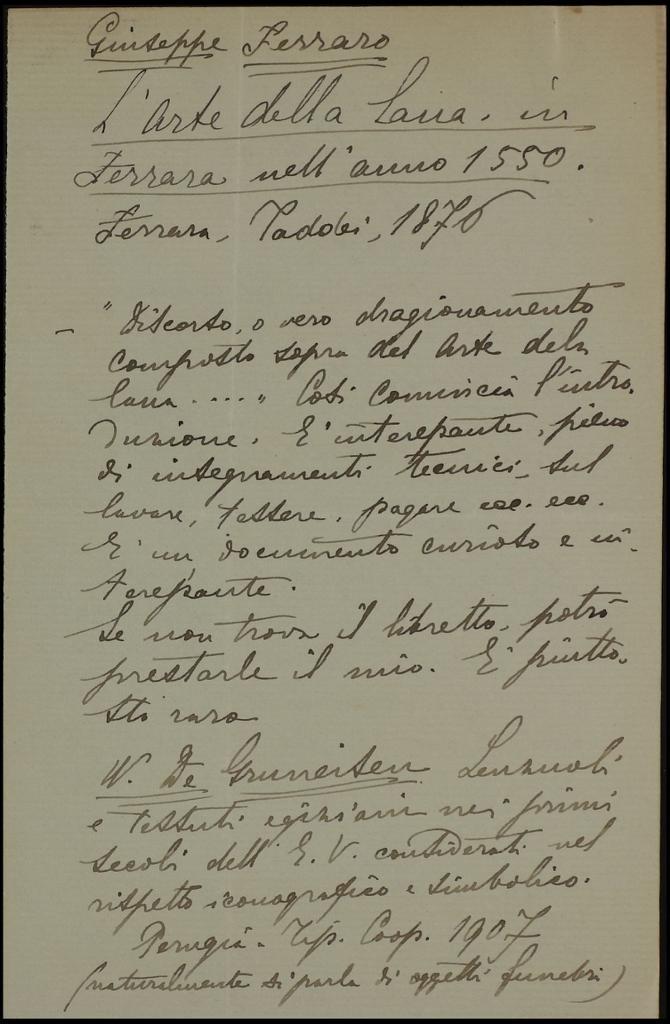 Giuseppe Ferraro
L'arte della lana in
Ferrara nell'anno 1550.
Ferrara, Taddei, 1876
- "Discorso, o vero dragionamento
composto sopra del arte dela
lana....." Così comincia l'intro-
duzione. E' interessante, pieno
di insegnamenti tecnici, sul
lavare, tessere, pagare ecc. ecc.
E' un documento curioso e in-
teressante.
Se non trova il libretto, potrò
prestarle il mio. E' piutto-
sto raro
W. De Gruneisen Lenzuoli
e tessuti egiziani nei primi
secoli dell'E. V. considerati nel
rispetto iconografico e simbolico.
Perugia - Tip. Coop. 1907
(naturalmente si parla di oggetti funebri)